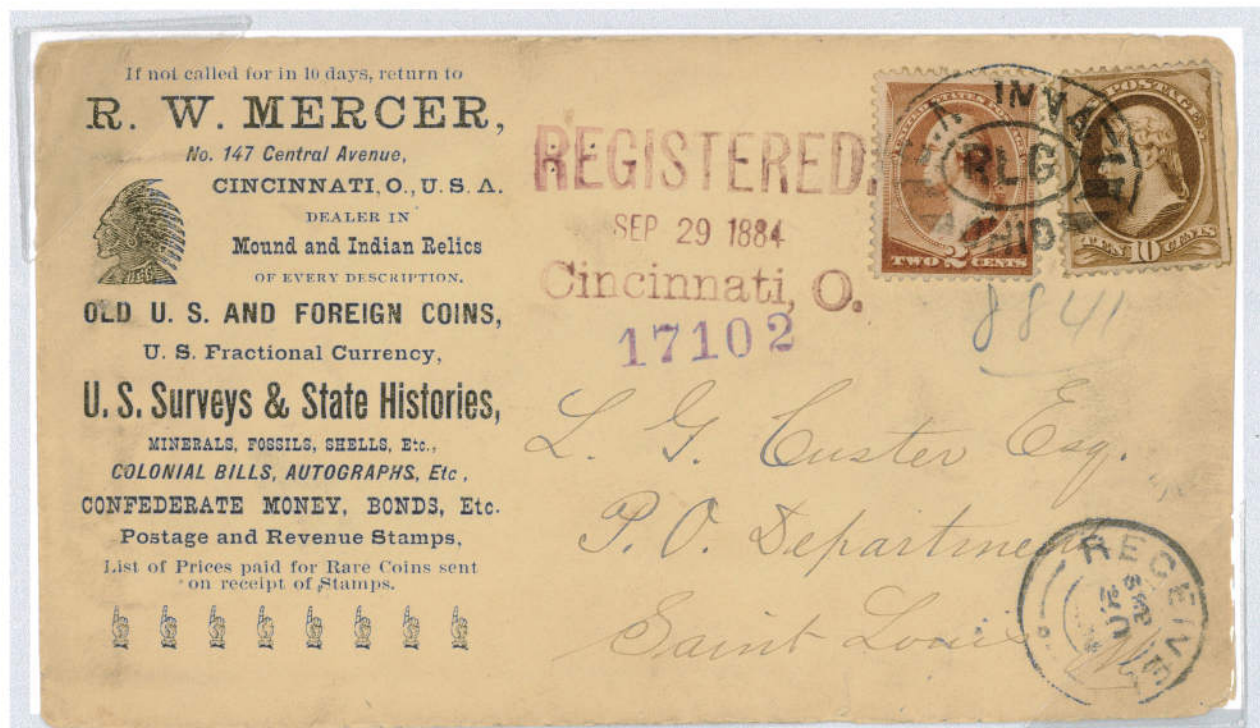 If not called for in 10 days, return to
R. W. MERCER,
No. 147 Central Avenue,
CINCINNATI, O., U. S. A.
DEALER IN
Mound and Indian Relics
OF EVERY DESCRIPTION.
OLD U. S. AND FOREIGN COINS,
U. S. Fractional Currency,
U. S. Surveys & State Histories,
MINERALS, FOSSILS, SHELLS, Etc.,
COLONIAL BILLS, AUTOGRAPHS, Etc,
CONFEDERATE MONEY, BONDS, Etc.
Postage and Revenue Stamps,
List of Prices paid for Rare Coins sent
on receipt of Stamps.
REGISTERED.
SEP 29 1884
Cincinnati, O.
17102
RLG
OHIO
TWO 2 CENTS
POSTAGE
TEN 10 CENTS
8841
L. G. Custer Esq.
P. O. Department
Saint Louis
RECEIVE